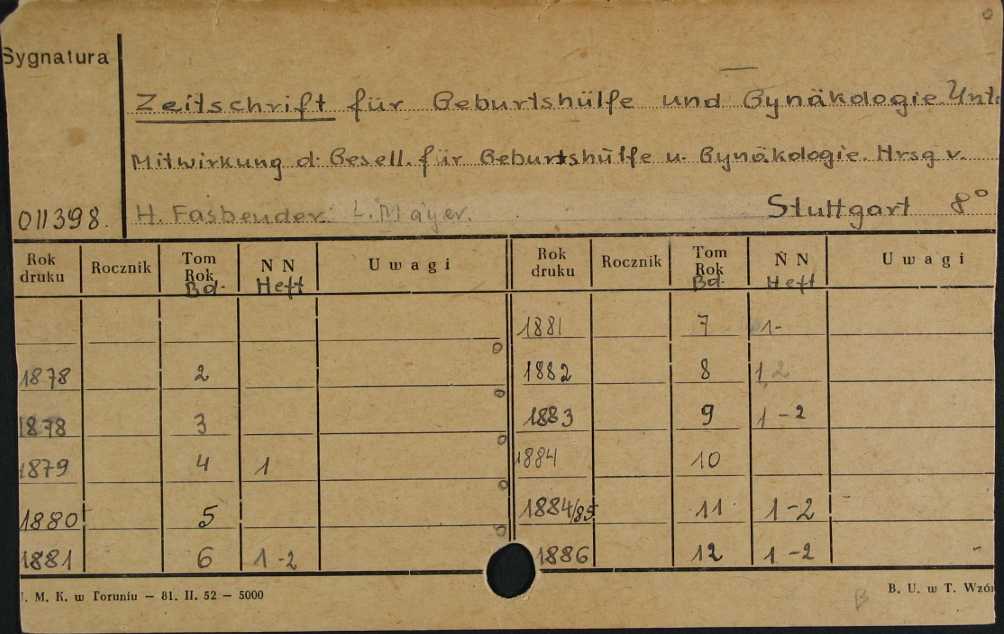 Sygnatura
Zeitschrift für Geburtshülfe und Gynäkologie Unt.
Mitwirkung d. Gesell. für Geburtshülfe u. Gynäkologie. Hrsg v.
011398. H. Fasbender. L. Mayer. Stuttgart 8°
Rok druku Rocznik Tom Rok Bd. N N Heft Uwagi Rok druku Rocznik Tom Rok Bd. N N Heft Uwagi
1881 7 1-
1878 2 1882 8 1,2
1878 3 1883 9 1-2
1879 4 1 1884 10
1880 5 1884/85 11 1-2
1881 6 1-2 1886 12 1-2
U. M. K. w Toruniu — 81. II. 52 — 5000 B B. U. w T. Wzór